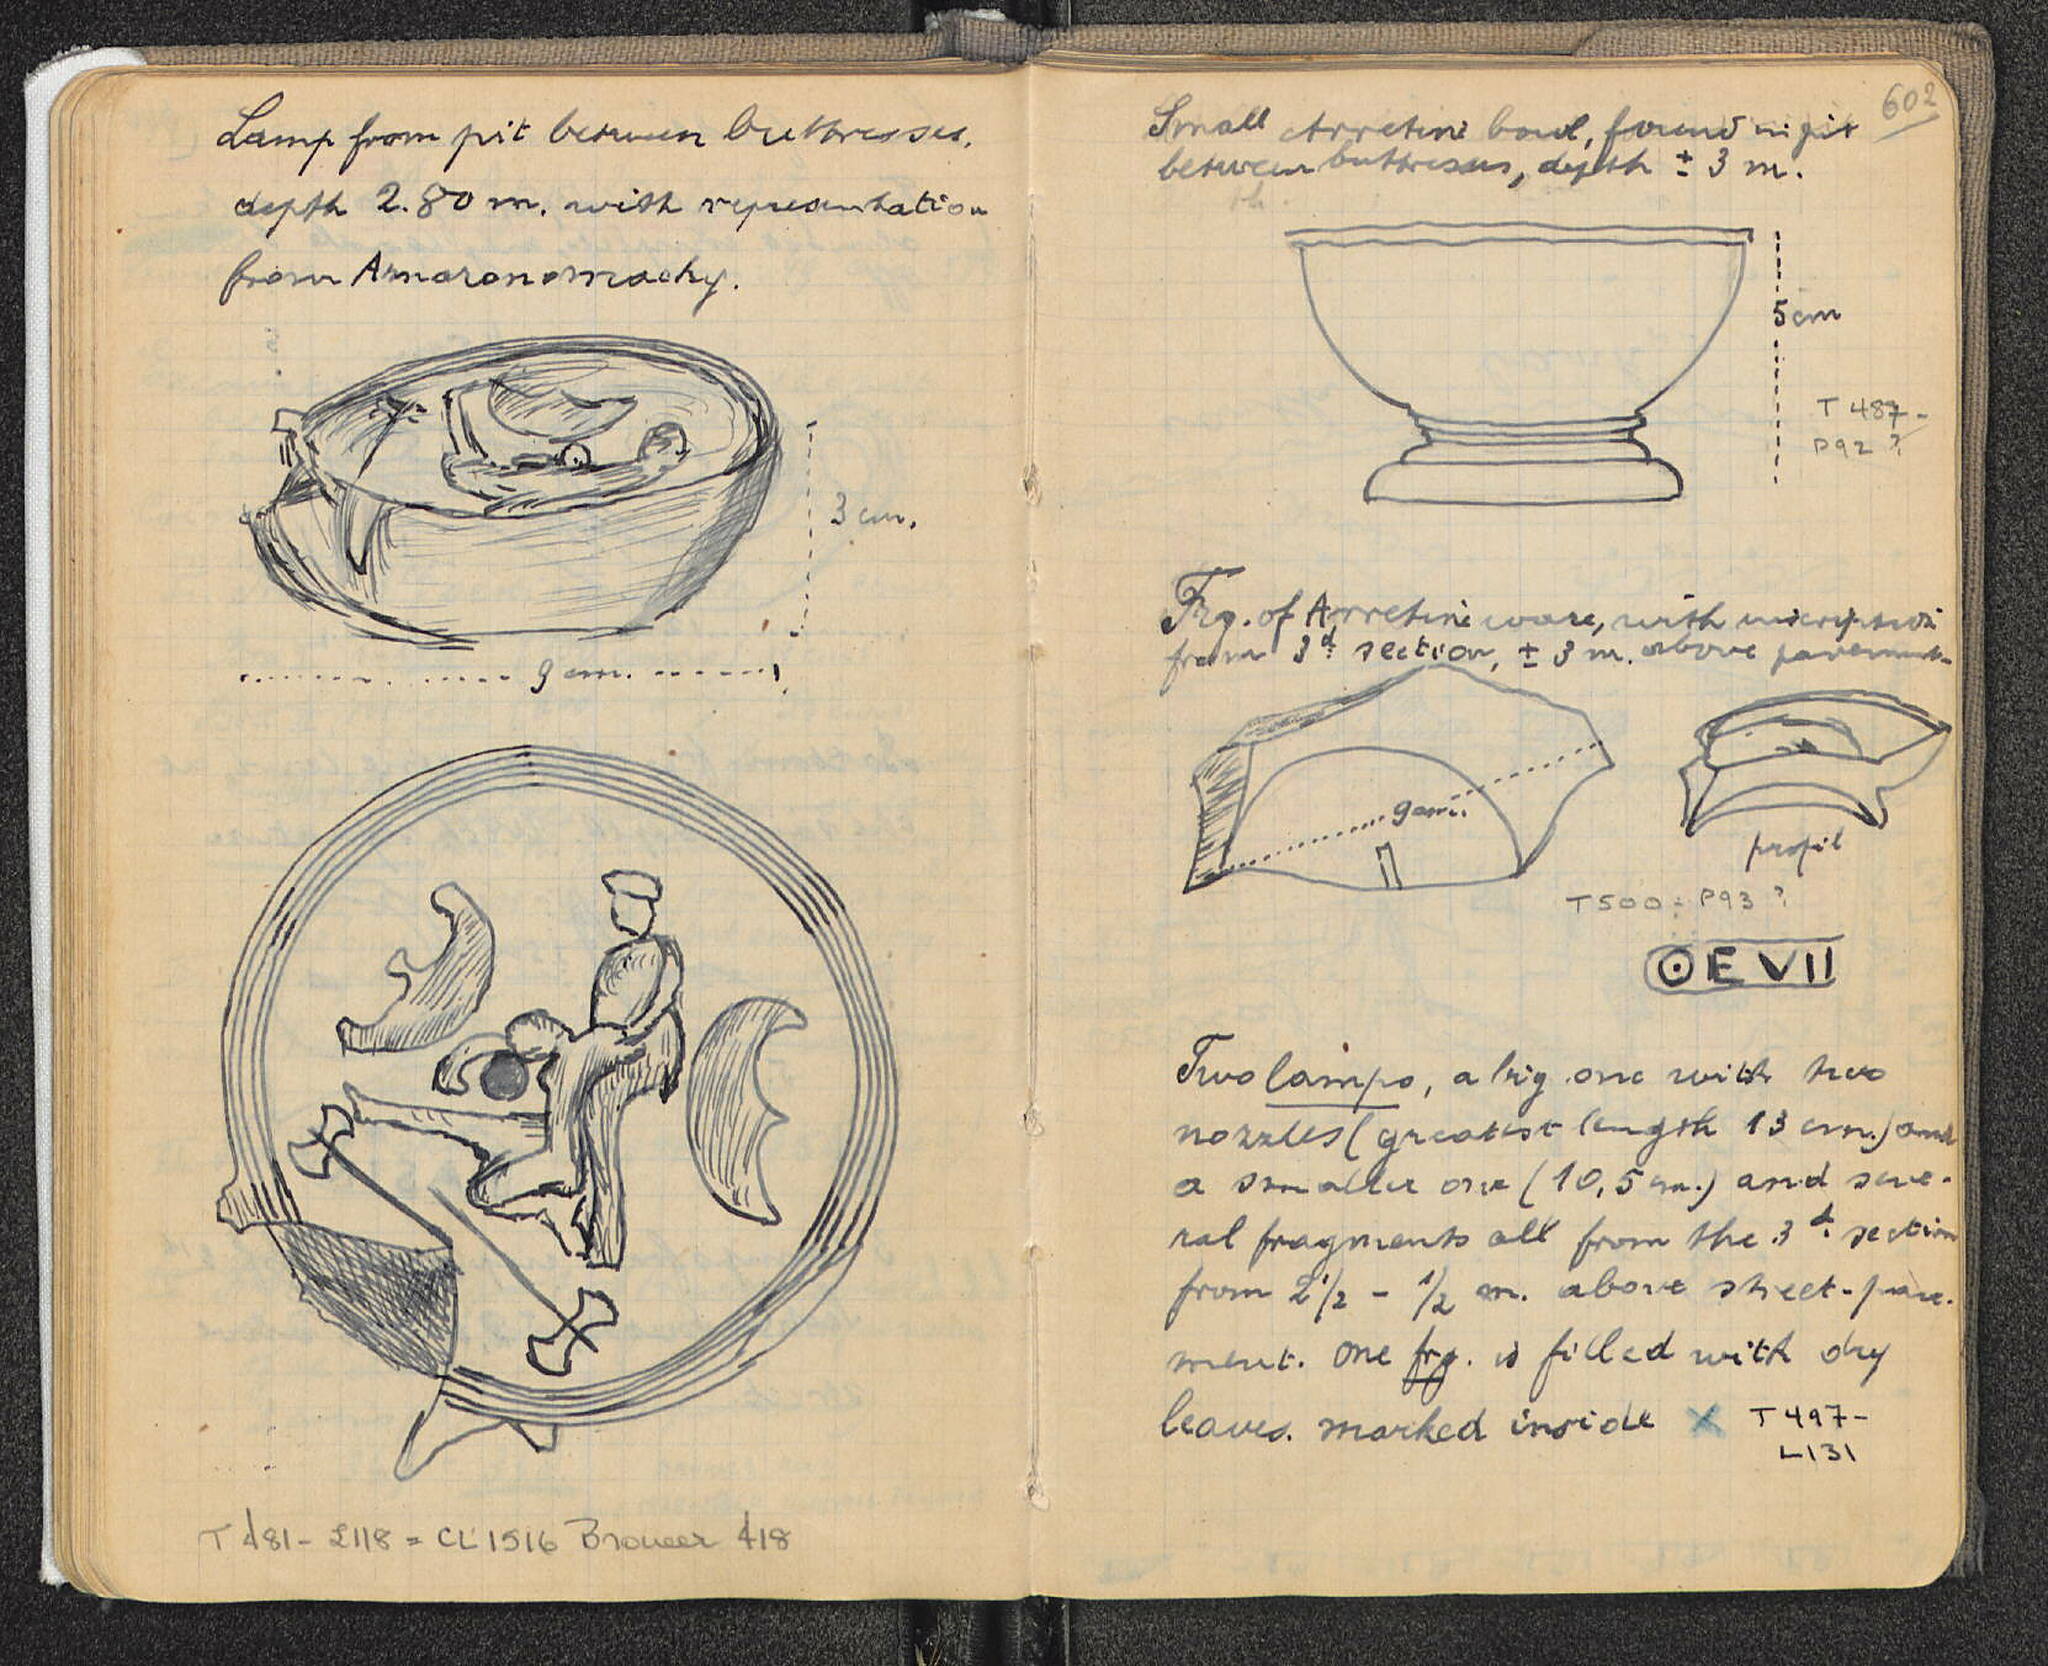 Lamp from pit between buttresses.
depth 2.80 m. with representation
from Amazonomachy.
3 cm.
9 cm.
T 481 - L118 = CL 1516 Broneer 418
602
Small Arretine bowl, found in pit
between buttresses, depth ± 3 m.
5 cm
T 487 -
P92 ?
Frg. of Arretine ware, with inscription
from 3d. section, ± 3 m. above pavement.
9 cm.
profil
T500 : P93 ?
ΘEVII
Two lamps, a big one with two
nozzles (greatest length 13 cm.) and
a smaller one (10,5 cm.) and seve-
ral fragments all from the 3d. section
from 2 1/2 - 1/2 m. above street-pave-
ment. One frg. is filled with dry
leaves. marked inside X T 497 -
L131